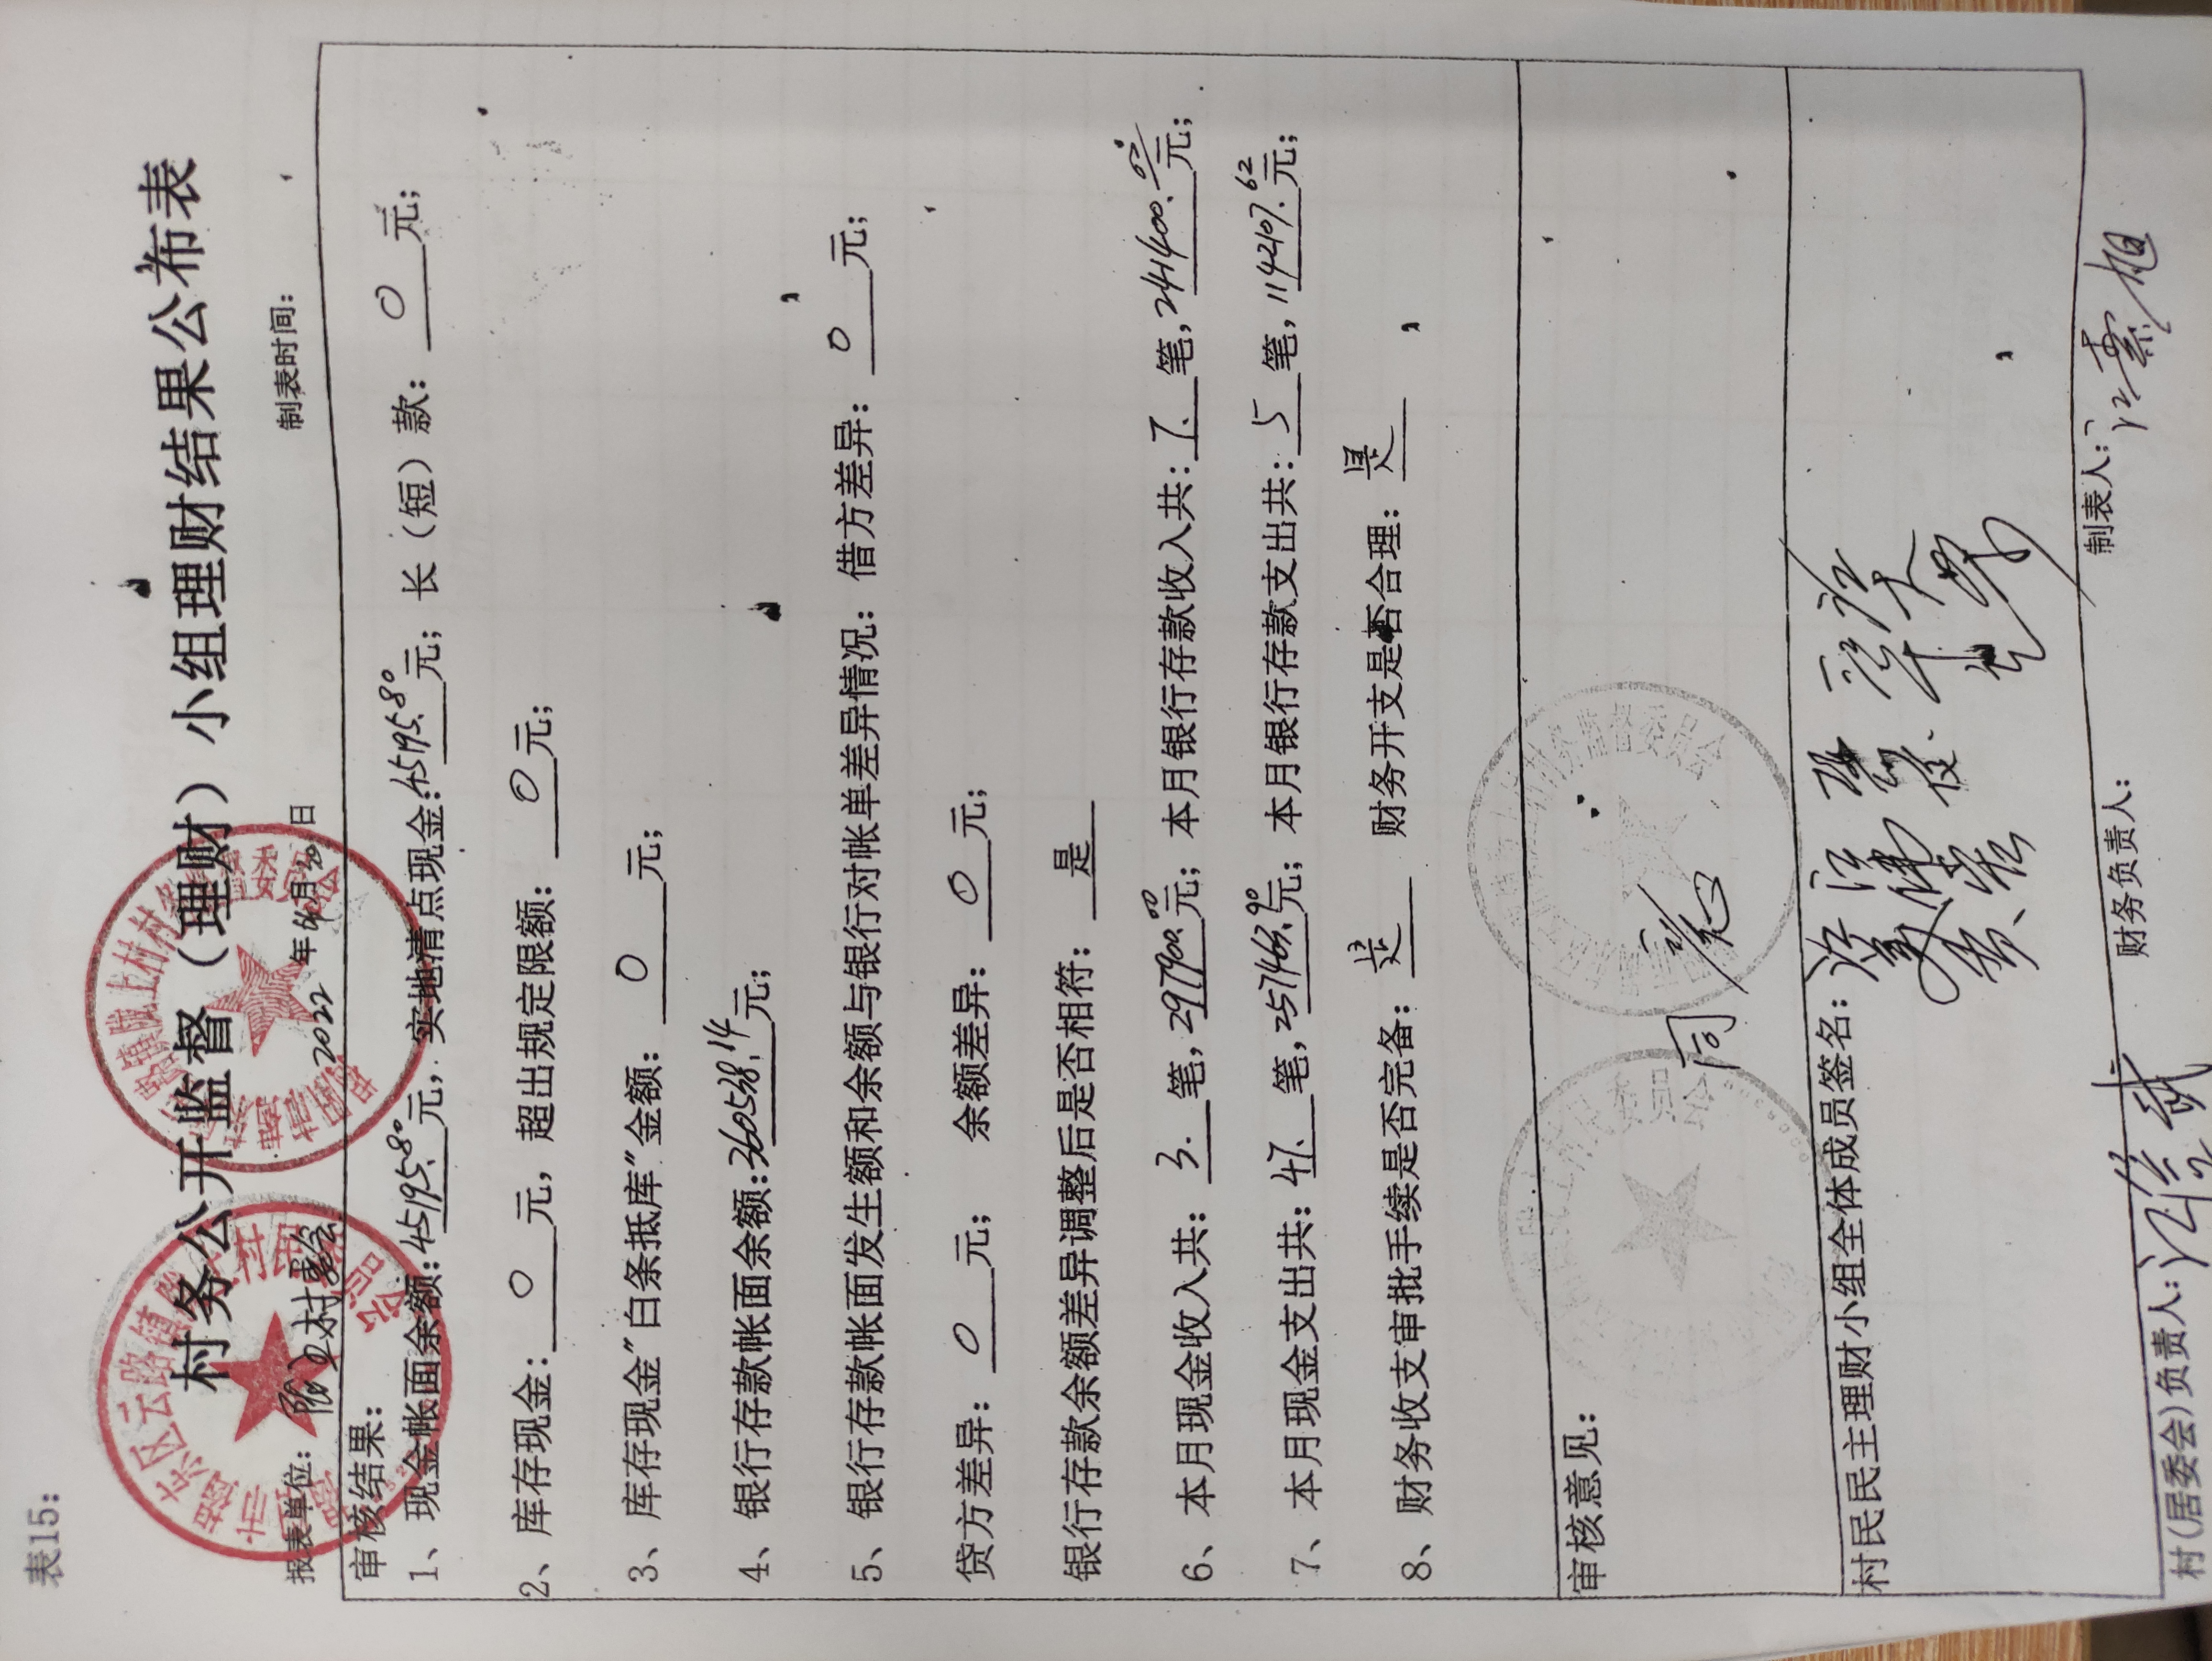 表15:
村务公开监督（理财）小组理财结果公布表
报表单位: 2022年4月30日 制表时间:
审核结果:
1、现金帐面余额:45195.80元, 实地清点现金:45195.80元; 长（短）款: 0元;
2、库存现金: 0元, 超出规定限额: 0元;
3、库存现金"白条抵库"金额: 0元;
4、银行存款帐面余额:360538.14元;
5、银行存款帐面发生额和余额与银行对帐单差异情况: 借方差异: 0元;
贷方差异: 0元; 余额差异: 0元;
银行存款余额差异调整后是否相符: 是
6、本月现金收入共: 3.笔,297900.00元; 本月银行存款收入共: 7.笔,241400.07元;
7、本月现金支出共: 47.笔,257463.90元; 本月银行存款支出共: 5笔,114207.62元;
8、财务收支审批手续是否完备: 是 财务开支是否合理: 是
审核意见:
同意
村民民主理财小组全体成员签名:
村(居委会)负责人: 财务负责人: 制表人: